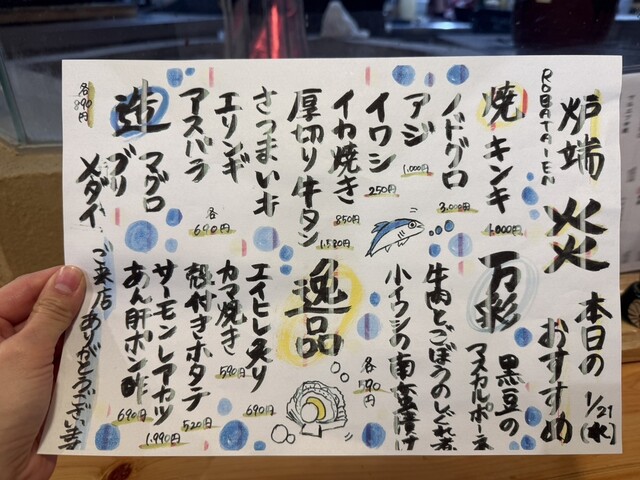 炉端 炎
ROBATA IEN
本日の
おすすめ
1/21(水)
焼
キンキ
4,000円
ノドグロ
3,000円
アジ
1,000円
イワシ
250円
イカ焼き
850円
厚切り牛タン
1,580円
さつまいも
エリンギ
アスパラ
各690円
造
各890円
マグロ
ブリ
メダイ
万彩
黒豆の
マスカルポーネ
牛肉とごぼうのしぐれ煮
小イワシの南蛮漬け
各590円
逸品
エイヒレ炙り
690円
カマ焼き
590円
殻付きホタテ
520円
サーモンレアカツ
1,990円
あん肝ポン酢
690円
ご来店ありがとうございます